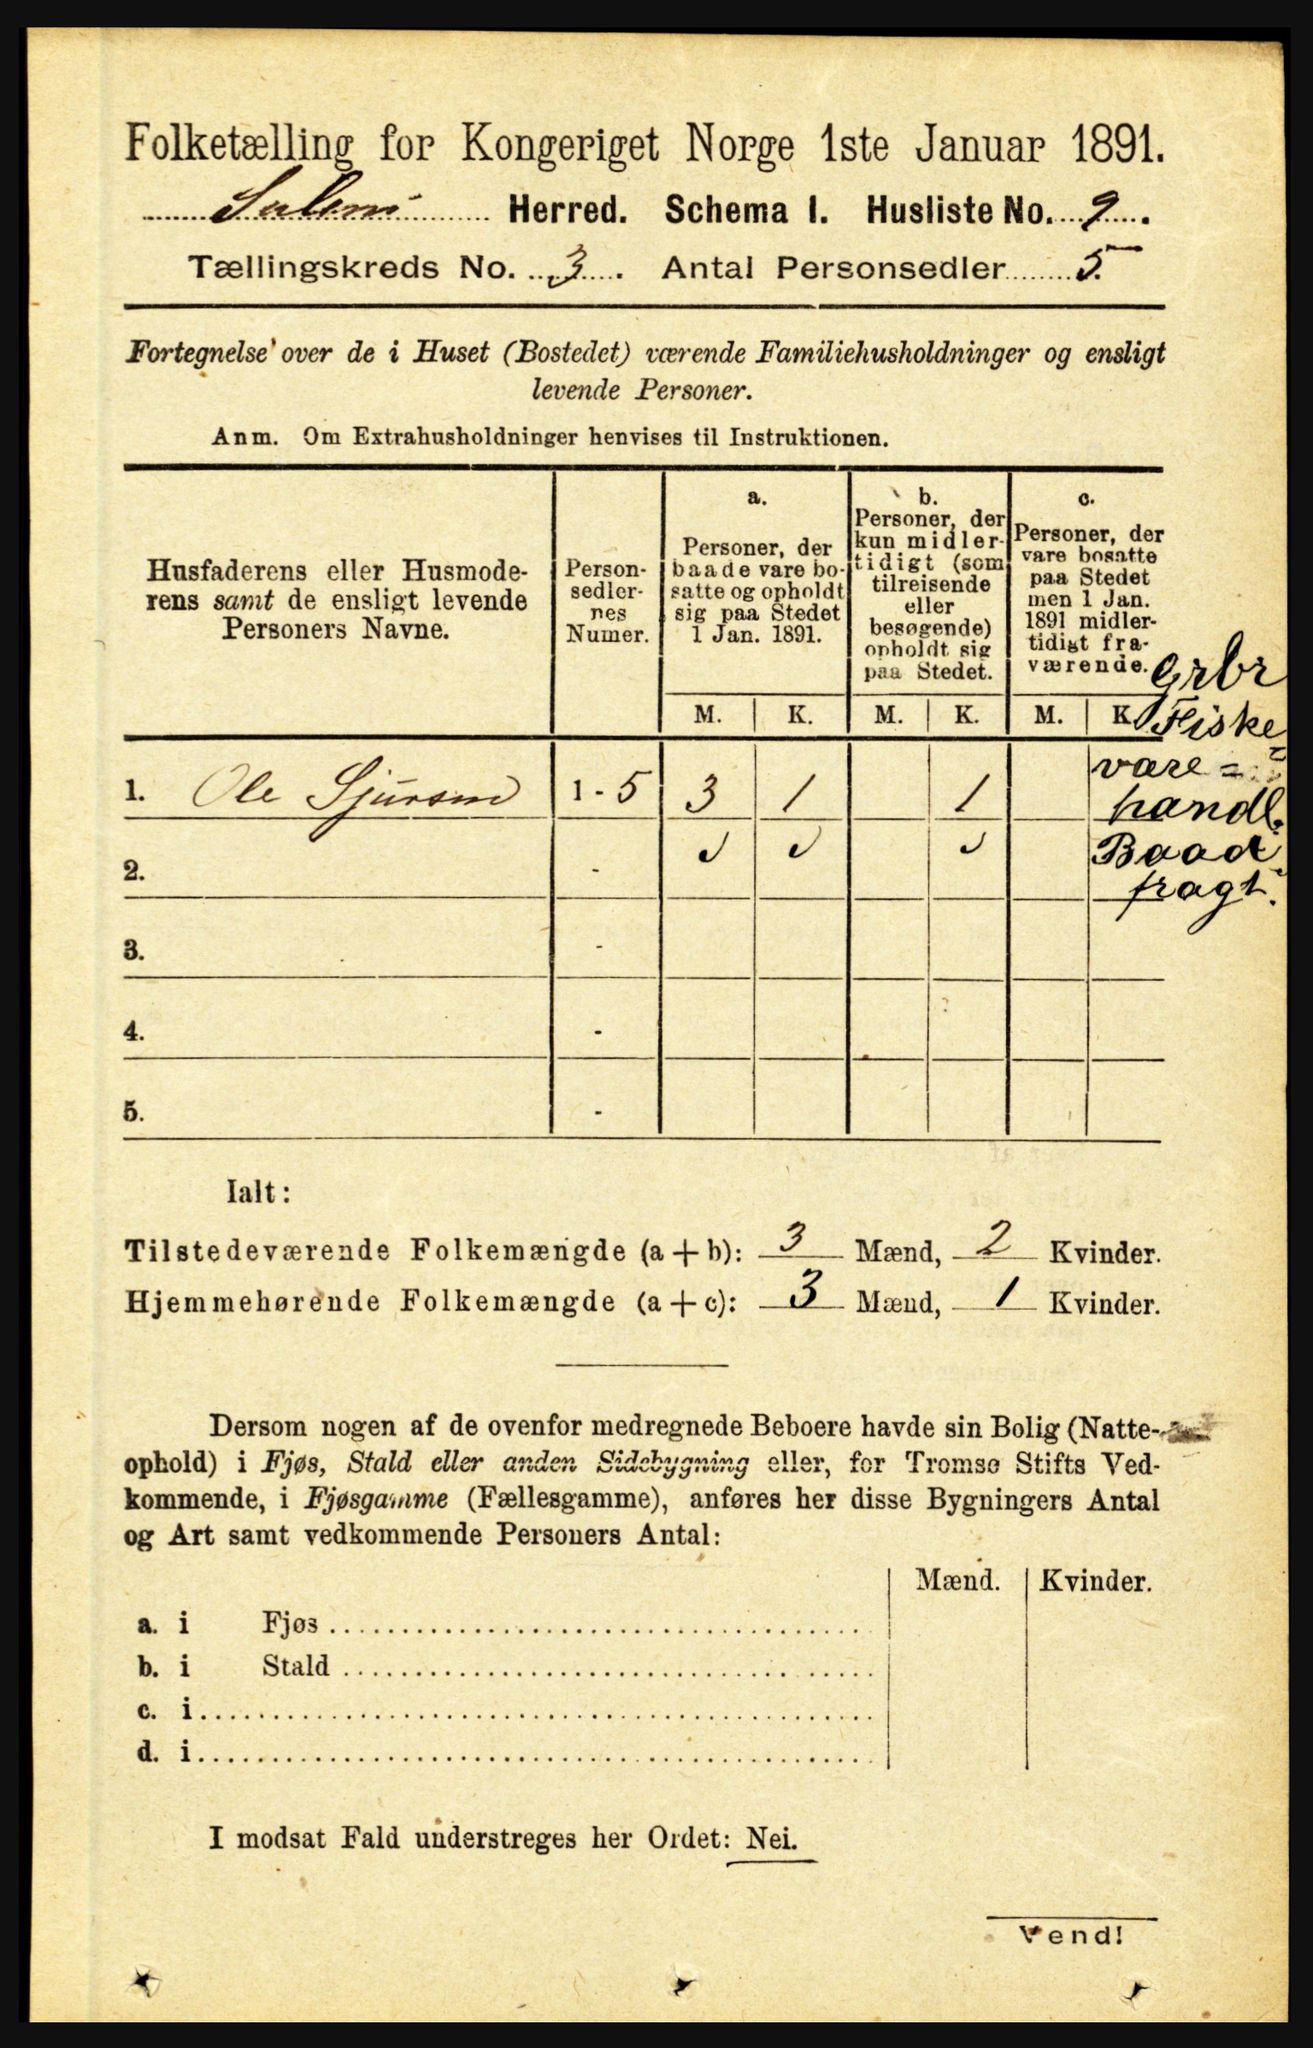 Folketælling for Kongeriget Norge 1ste Januar 1891.
Herred. Schema I. Husliste No. 9.
Tællingskreds No. 3. Antal Personsedler 5.
Fortegnelse over de i Huset (Bostedet) værende Familiehusholdninger og ensligt
levende Personer.
Anm. Om Extrahusholdninger henvises til Instruktionen.
Husfaderens eller Husmode-
rens samt de ensligt levende
Personers Navne.
Person-
sedler-
nes
Numer.
a.
Personer, der
baade vare bo-
satte og opholdt
sig paa Stedet
1 Jan. 1891.
b.
Personer, der
kun midler-
tidigt (som
tilreisende
eller
besøgende)
opholdt sig
paa Stedet.
c.
Personer, der
vare bosatte
paa Stedet
men 1 Jan.
1891 midler-
tidigt fra-
værende.
M. K. M. K. M. K.
Grbr
Fiske
vare=
handl.
Baad
fragt.
1. Ole Sjursen 1 - 5 3 1 1
2. -
3. -
4. -
5. -
Ialt:
Tilstedeværende Folkemængde (a + b): 3 Mænd, 2 Kvinder.
Hjemmehørende Folkemængde (a + c): 3 Mænd, 1 Kvinder.
Dersom nogen af de ovenfor medregnede Beboere havde sin Bolig (Natte-
ophold) i Fjøs, Stald eller anden Sidebygning eller, for Tromsø Stifts Ved-
kommende, i Fjøsgamme (Fællesgamme), anføres her disse Bygningers Antal
og Art samt vedkommende Personers Antal:
Mænd. Kvinder.
a. i Fjøs
b. i Stald
c. i
d. i
I modsat Fald understreges her Ordet: Nei.
Vend!